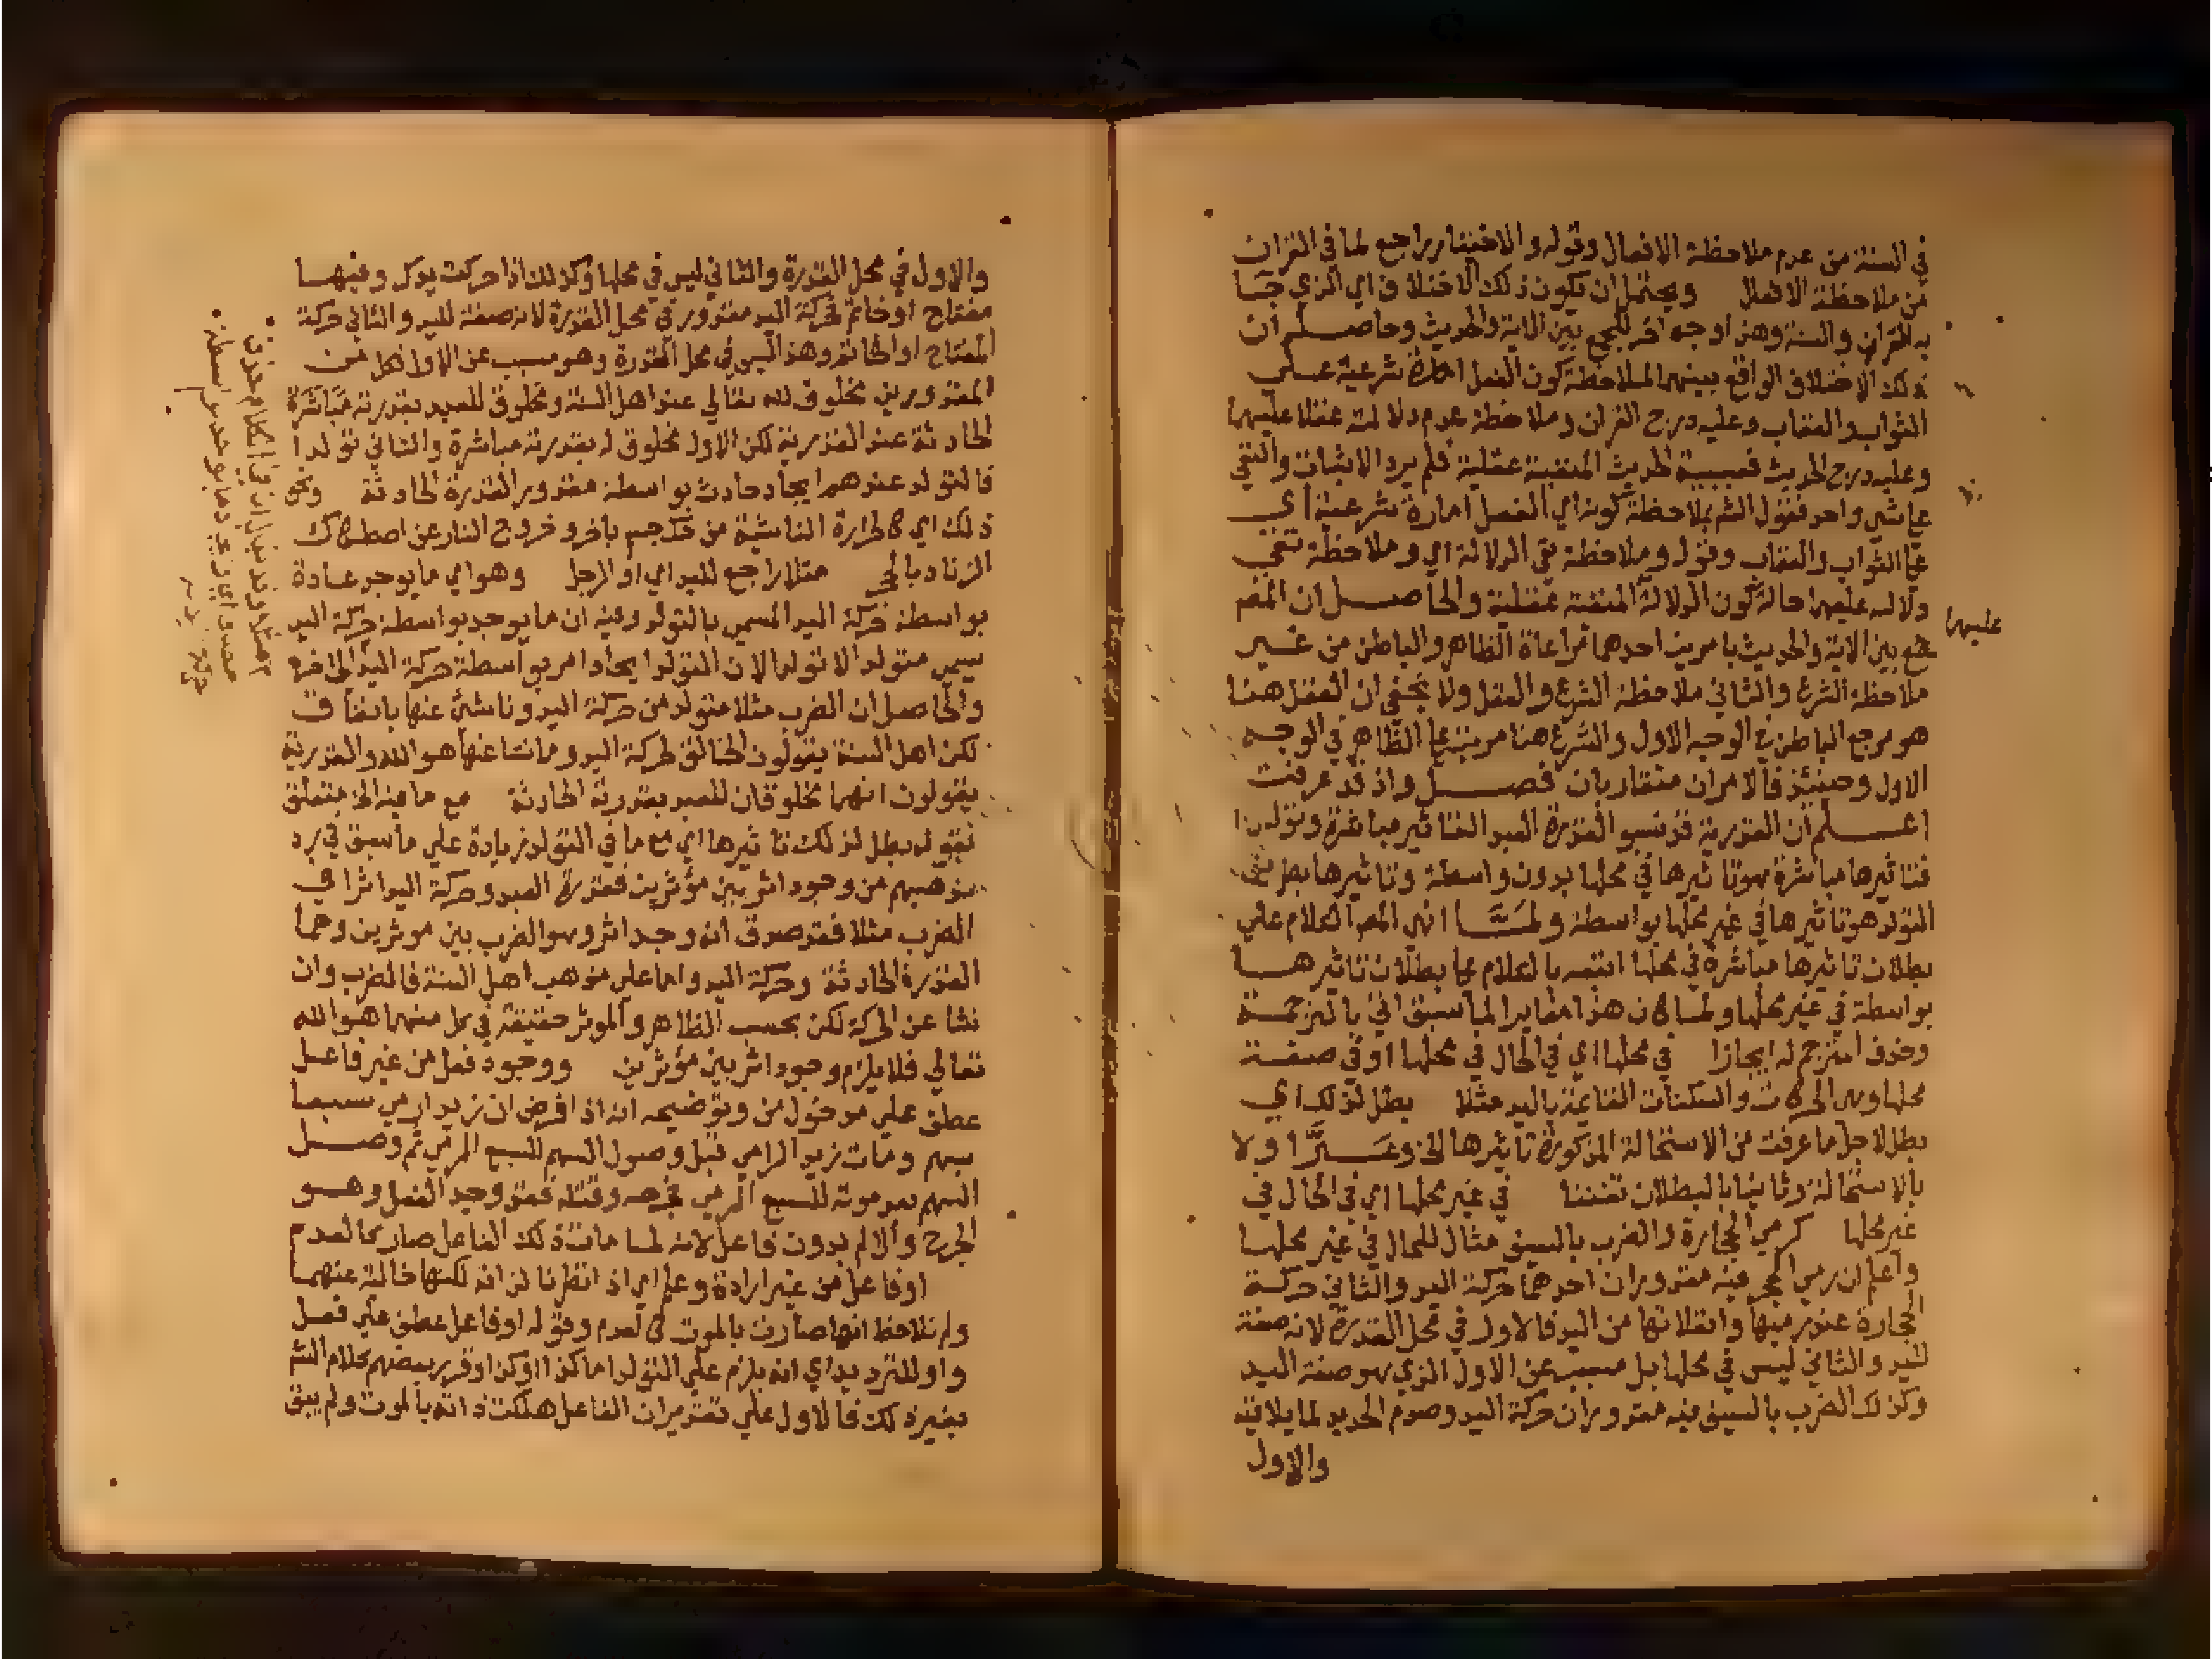 في السنة من عدم ملاحظة الافعال وقوله والاختيار راجع لما في القران
من ملاحظة الافعال ويحتمل ان يكون ذلك الاختلاف اي الذي جا
به القران والسنة وهذا وجه اخر للجمع بين الاية والحديث وحاصله ان
ذلك الاختلاف الواقع بينهما لملاحظة كون الفعل امارة شرعية على
الثواب والعقاب وعليه درج القران وملاحظة عدم دلالته عقلا عليهما
وعليه درج الحديث فسببية الحديث المنفية عقلية فلم يرد الاثبات والنفي
علي شي واحد فقول الشم بملاحظة كونه اي الفعل امارة شرعية اي
علي الثواب والعقاب وقوله وملاحظة نفي الدلالة اي وملاحظة نفي
دلالته عليهما حالة كون الدلالة المنفية عقلية والحاصل ان المصم
عليهما
جمع بين الاية والحديث بامرين احدهما مراعاة الظاهر والباطن من غير
ملاحظة الشرع والثاني ملاحظة الشرع والعقل ولا يخفى ان العقل هنا
هو مرجع الباطن في الوجه الاول والشرع هنا مرتب علي الظاهر في الوجه
الاول وحينئذ فالامران متقاربان فصل واذ قد عرفت
اعلم ان القدرية قد نسبوا لقدرة العبد التاثير مباشرة وتولدا
فتاثيرها مباشرة هو تاثيرها في محلها بدون واسطة وتاثيرها بطريق
التولد هو تاثيرها في غير محلها بواسطة ولمَّا انهى المصم الكلام علي
بطلان تاثيرها مباشرة في محلها اتبعه بالكلام علي بطلان تاثيرها
بواسطة في غير محلها ولما كان هذا مغايرا لما سبق اتي بالترجمة
وحذف المترجم له ايجازا في محلها اي في الحال في محلها او في صفة
محلها وهي الحركات والسكنات القائمة باليد مثلا بطل لذلك اي
بطل لاجل ما عرفت من الاستحالة المذكورة تاثيرها الخ وعبَّر اولا
بالاستحالة وثانيا بالبطلان تفننا في غير محلها اي في الحال في
غير محلها كرمي الحجارة والضرب بالسيف مثال للحال في غير محلها
واعلم ان رمي الحجر فيه مقدوران احدهما حركة اليد والثاني حركة
الحجارة عند رميها وانفلاتها من اليد فالاول في محل القدرة لانه صفة
لليد والثاني ليس في محلها بل مسبب عن الاول الذي هو صفة اليد
وكذلك الضرب بالسيف فيه مقدوران حركة اليد وصدم الحديد لما يلاقيه
والاول
والاول في محل القدرة والثاني ليس في محلها وكذلك اذا حركت يدك وفيها
مفتاح او خاتم فحركة اليد مقدور في محل القدرة لانه صفة لليد والثاني حركة
المفتاح او الخاتم وهذا ليس في محل القدرة وهو مسبب عن الاول فكل من
المقدورين مخلوق لله تعالي عند اهل السنة ومخلوق للعبد بقدرته مباشرة
الحادثة عند القدرية لكن الاول مخلوق له بقدرته مباشرة والثاني تولدا
فالتولد عندهم ايجاد حادث بواسطة مقدور القدرة الحادثة ونحو
ذلك اي كالحرارة الناشئة من حك جسم باخر وخروج النار عن اصطكاك
الزناد بالحجر مثلا راجع لليد اي او الرجل وهو اي ما يوجد عادة
بواسطة حركة اليد المسمى بالتولد وفيه ان ما يوجد بواسطة حركة اليد
يسمي متولدا لا تولدا لان التولد ايجاد امر بواسطة حركة اليد الى اخره
والحاصل ان الضرب مثلا متولد من حركة اليد وناشئ عنها باتفاق
لكن اهل السنة يقولون الخالق لحركة اليد وما نشا عنها هو الله والقدرية
يقولون انهما مخلوقان للعبد بقدرته الحادثة مع ما فيه الخ متعلق
بقوله بطل لذلك تاثيرها اي مع ما في التولد زيادة علي ما سبق في رد
مذهبهم من وجود اثر بين مؤثرين فقدرة العبد وحركة اليد اثرا في
الضرب مثلا فقد صدق انه وجد اثر وهو الضرب بين موثرين وهما
القدرة الحادثة وحركة اليد واما علي مذهب اهل السنة فالضرب وان
نشا عن الحركة لكن بحسب الظاهر والموثر حقيقة في كل منهما هو الله
تعالي فلا يلزم وجود اثر بين مؤثرين ووجود فعل من غير فاعل
عطف علي مدخول من وتوضيحه انه اذا فرض ان زيدا رمي سبعا
بسهم ومات زيد الرامي قبل وصول السهم للسبع المرمي ثم وصل
السهم بعد موته للسبع المرمي فجرحه وقتله فقد وجد الفعل وهو
الجرح والالم بدون فاعل لانه لما مات ذلك الفاعل صار كالعدم
او فاعل من غير ارادة وعلم اي اذ انظرنا لذاته لكنها خالية عنهما
ولم نلاحظ انها صارت بالموت كالعدم وقوله او فاعل عطف علي فعل
واو للترديد اي انه يلزم علي التولد اما كذا او كذا وقرر بعضهم كلام الشم
بغير ذلك فالاول علي تقدير ان الفاعل هلكت ذاته بالموت ولم يبق